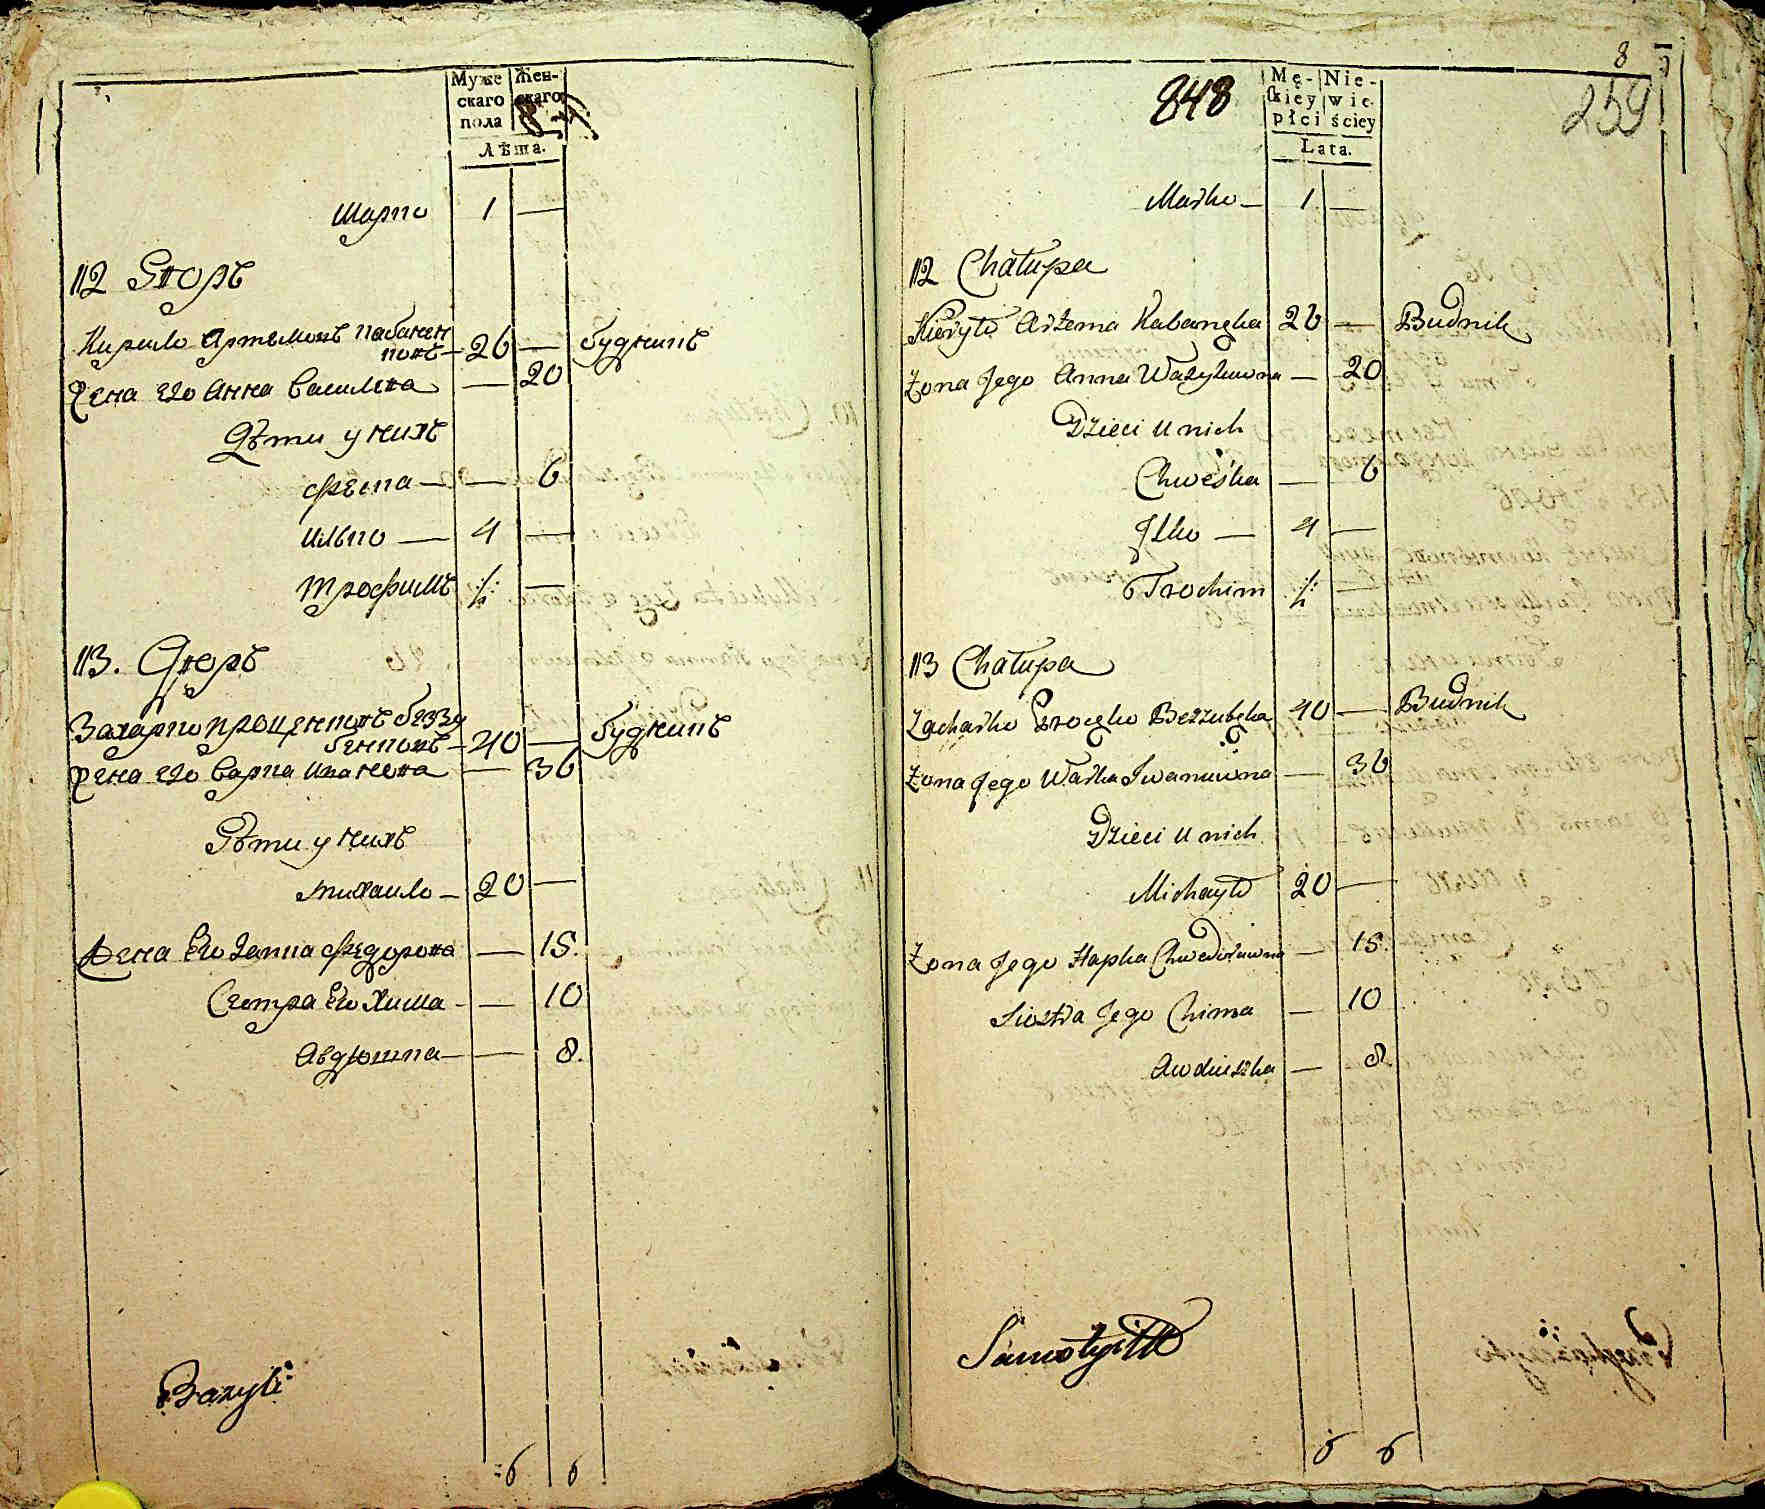 Муже
скаго
пола
Жен-
скаго
Лѣта.
Марко 1 —
112 Дворъ
Кирило Артемовъ Кабанен
ковъ — 26 — будникъ
Жена Его Анна Василева — 20
Дѣти у нихъ
Феська — — 6
Илько — 4 —
Трофимъ ½ —
113. Дворъ
Захарко Проценковъ беззу
бенковъ — 40 — будникъ
Жена Его Варка Иванева — 36
Дѣти у нихъ
Михаило — 20 —
Жена Его Гапка Федорова — 15.
Сестра Его Хима — — 10
Авдюшка — — 8.
Bazyli
6 6
8
848
259
Mę-
skiey
płci
Nie-
wie-
ściey
Lata.
Marko — 1 —
112 Chałupa
Kieryło Artema Kabanęka 26 — Budnik
Żona Jego Anna Wasylowna — 20
Dzieci u nich
Chweśka — 6
Ilko — 4 —
Trochim ½ —
113 Chałupa
Zacharko Procęko Bezzubęka 40 — Budnik
Żona Jego Warka Iwanowna — 36
Dzieci u nich
Michayło 20 —
Żona Jego Hapka Chwedorowna — 15.
Siostra Jego Chima — 10
Awdiuszka — 8.
6 6